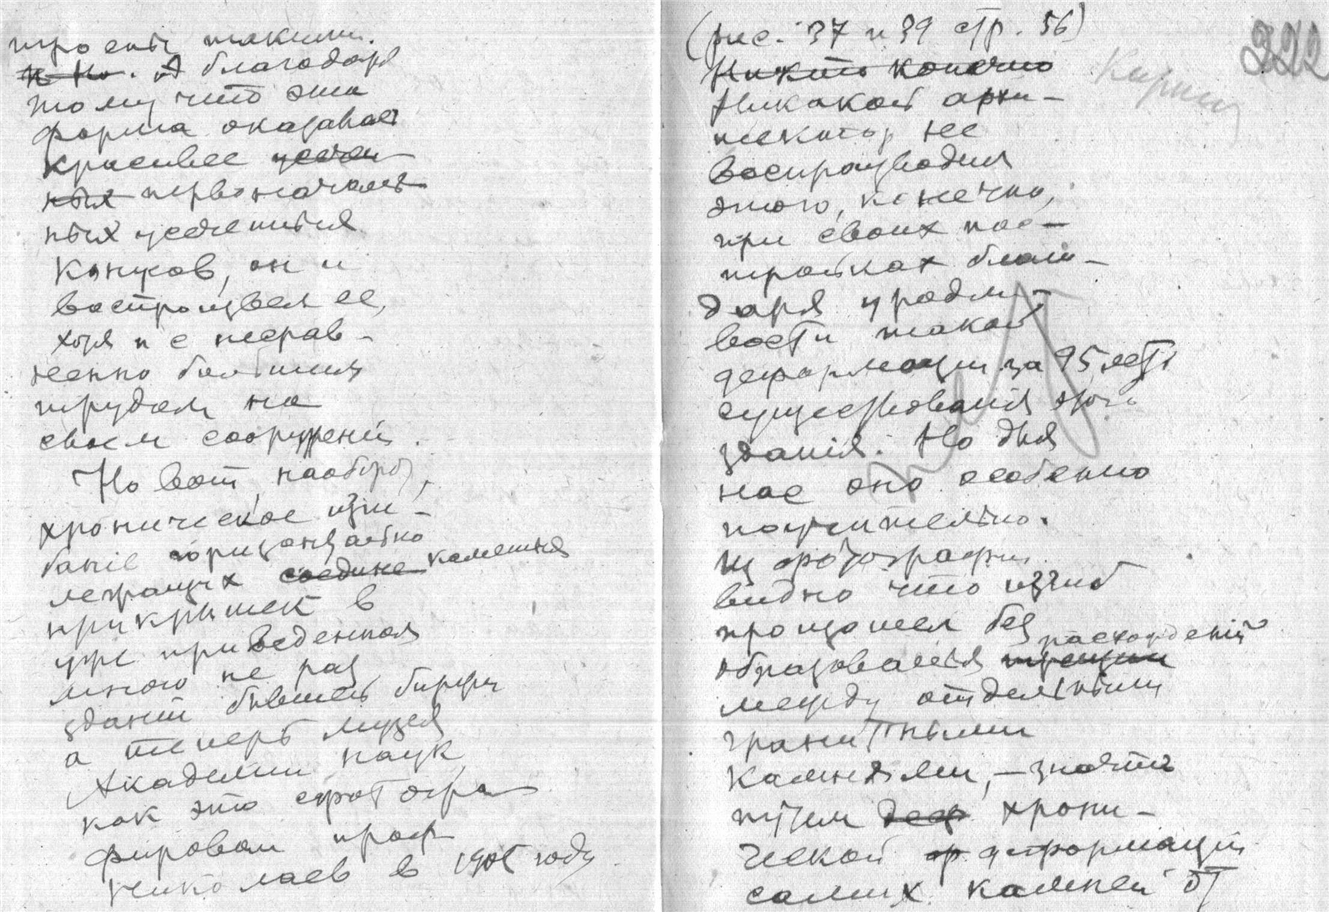 строены такими.
и но. А благодаря
тому что эта
форма оказалась
красивее усечен
ных первоначаль
ных усеченных
конусов, он и
воспроизвел ее,
хотя и с несрав-
ненно большим
трудом на
своем сооружении.
Но вот, наоборот,
хроническое изги-
банiе горизонтально
лежащих соедине каменных
прикрышек в
уже приведенном
мною не раз
здании бывшей биржи
а теперь музея
Академии наук
как это сфотогра
фировал проф
Николаев в 1905 году
(рис. 37 и 39 стр. 56)
322
Никто конечно
Никакой архи-
тектор не
воспроизводил
этого, конечно,
при своих пос-
тройках благо-
даря уродли-
вости такой
деформации за 95 лет
существования этого
зданiя. Но для
нас оно особенно
поучительно.
Из фотографии
видно что изгиб
произошел без
образования трещин расхождений
между отдельными
гранитными
камнями, – значит
путем деф хрони-
ческой деформации
самих камней от